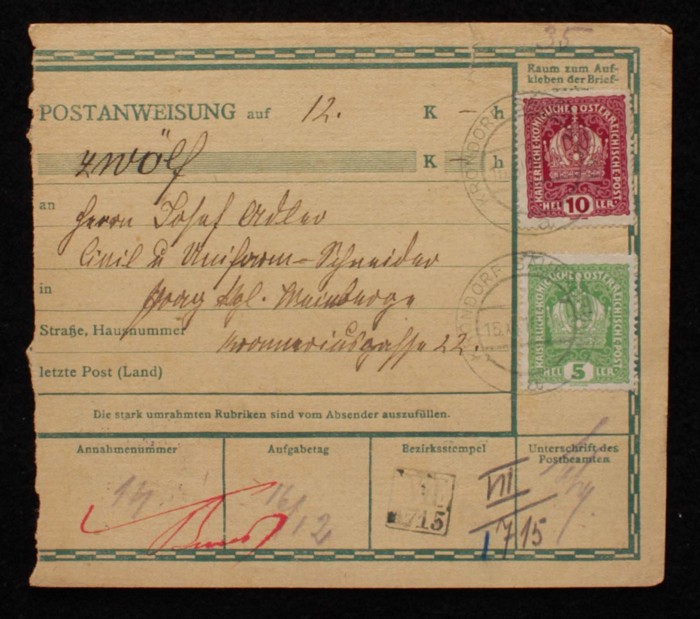 35
Raum zum Auf-
kleben der Brief-
POSTANWEISUNG auf 12. K – h
zwölf K – h
an
Herrn Josef Adler
Civil u Uniform-Schneider
in Prag Kgl. Weinberge
Straße, Hausnummer
22.
letzte Post (Land)
Die stark umrahmten Rubriken sind vom Absender auszufüllen.
KAISERLICHE KÖNIGLICHE ÖSTERREICHISCHE POST
HEL 10 LER
KAISERLICHE KÖNIGLICHE ÖSTERREICHISCHE POST
HEL 5 LER
KRONDORF
KRONDORF
15
Annahmenummer
Aufgabetag
Bezirksstempel
Unterschrift des
Postbeamten
16/12
715
VII
715